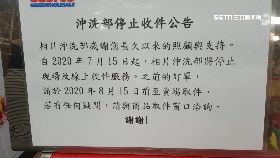 WHOLESALE
沖洗部停止收件公告
相片沖洗部感謝您長久以來的照顧與支持。
自2020年7月15日起，相片沖洗部將停止
現場及線上收件服務。之前的訂單，
請於2020年8月15日前至賣場取件。
若有任何疑問，請與商品取件窗口洽詢。
謝謝！